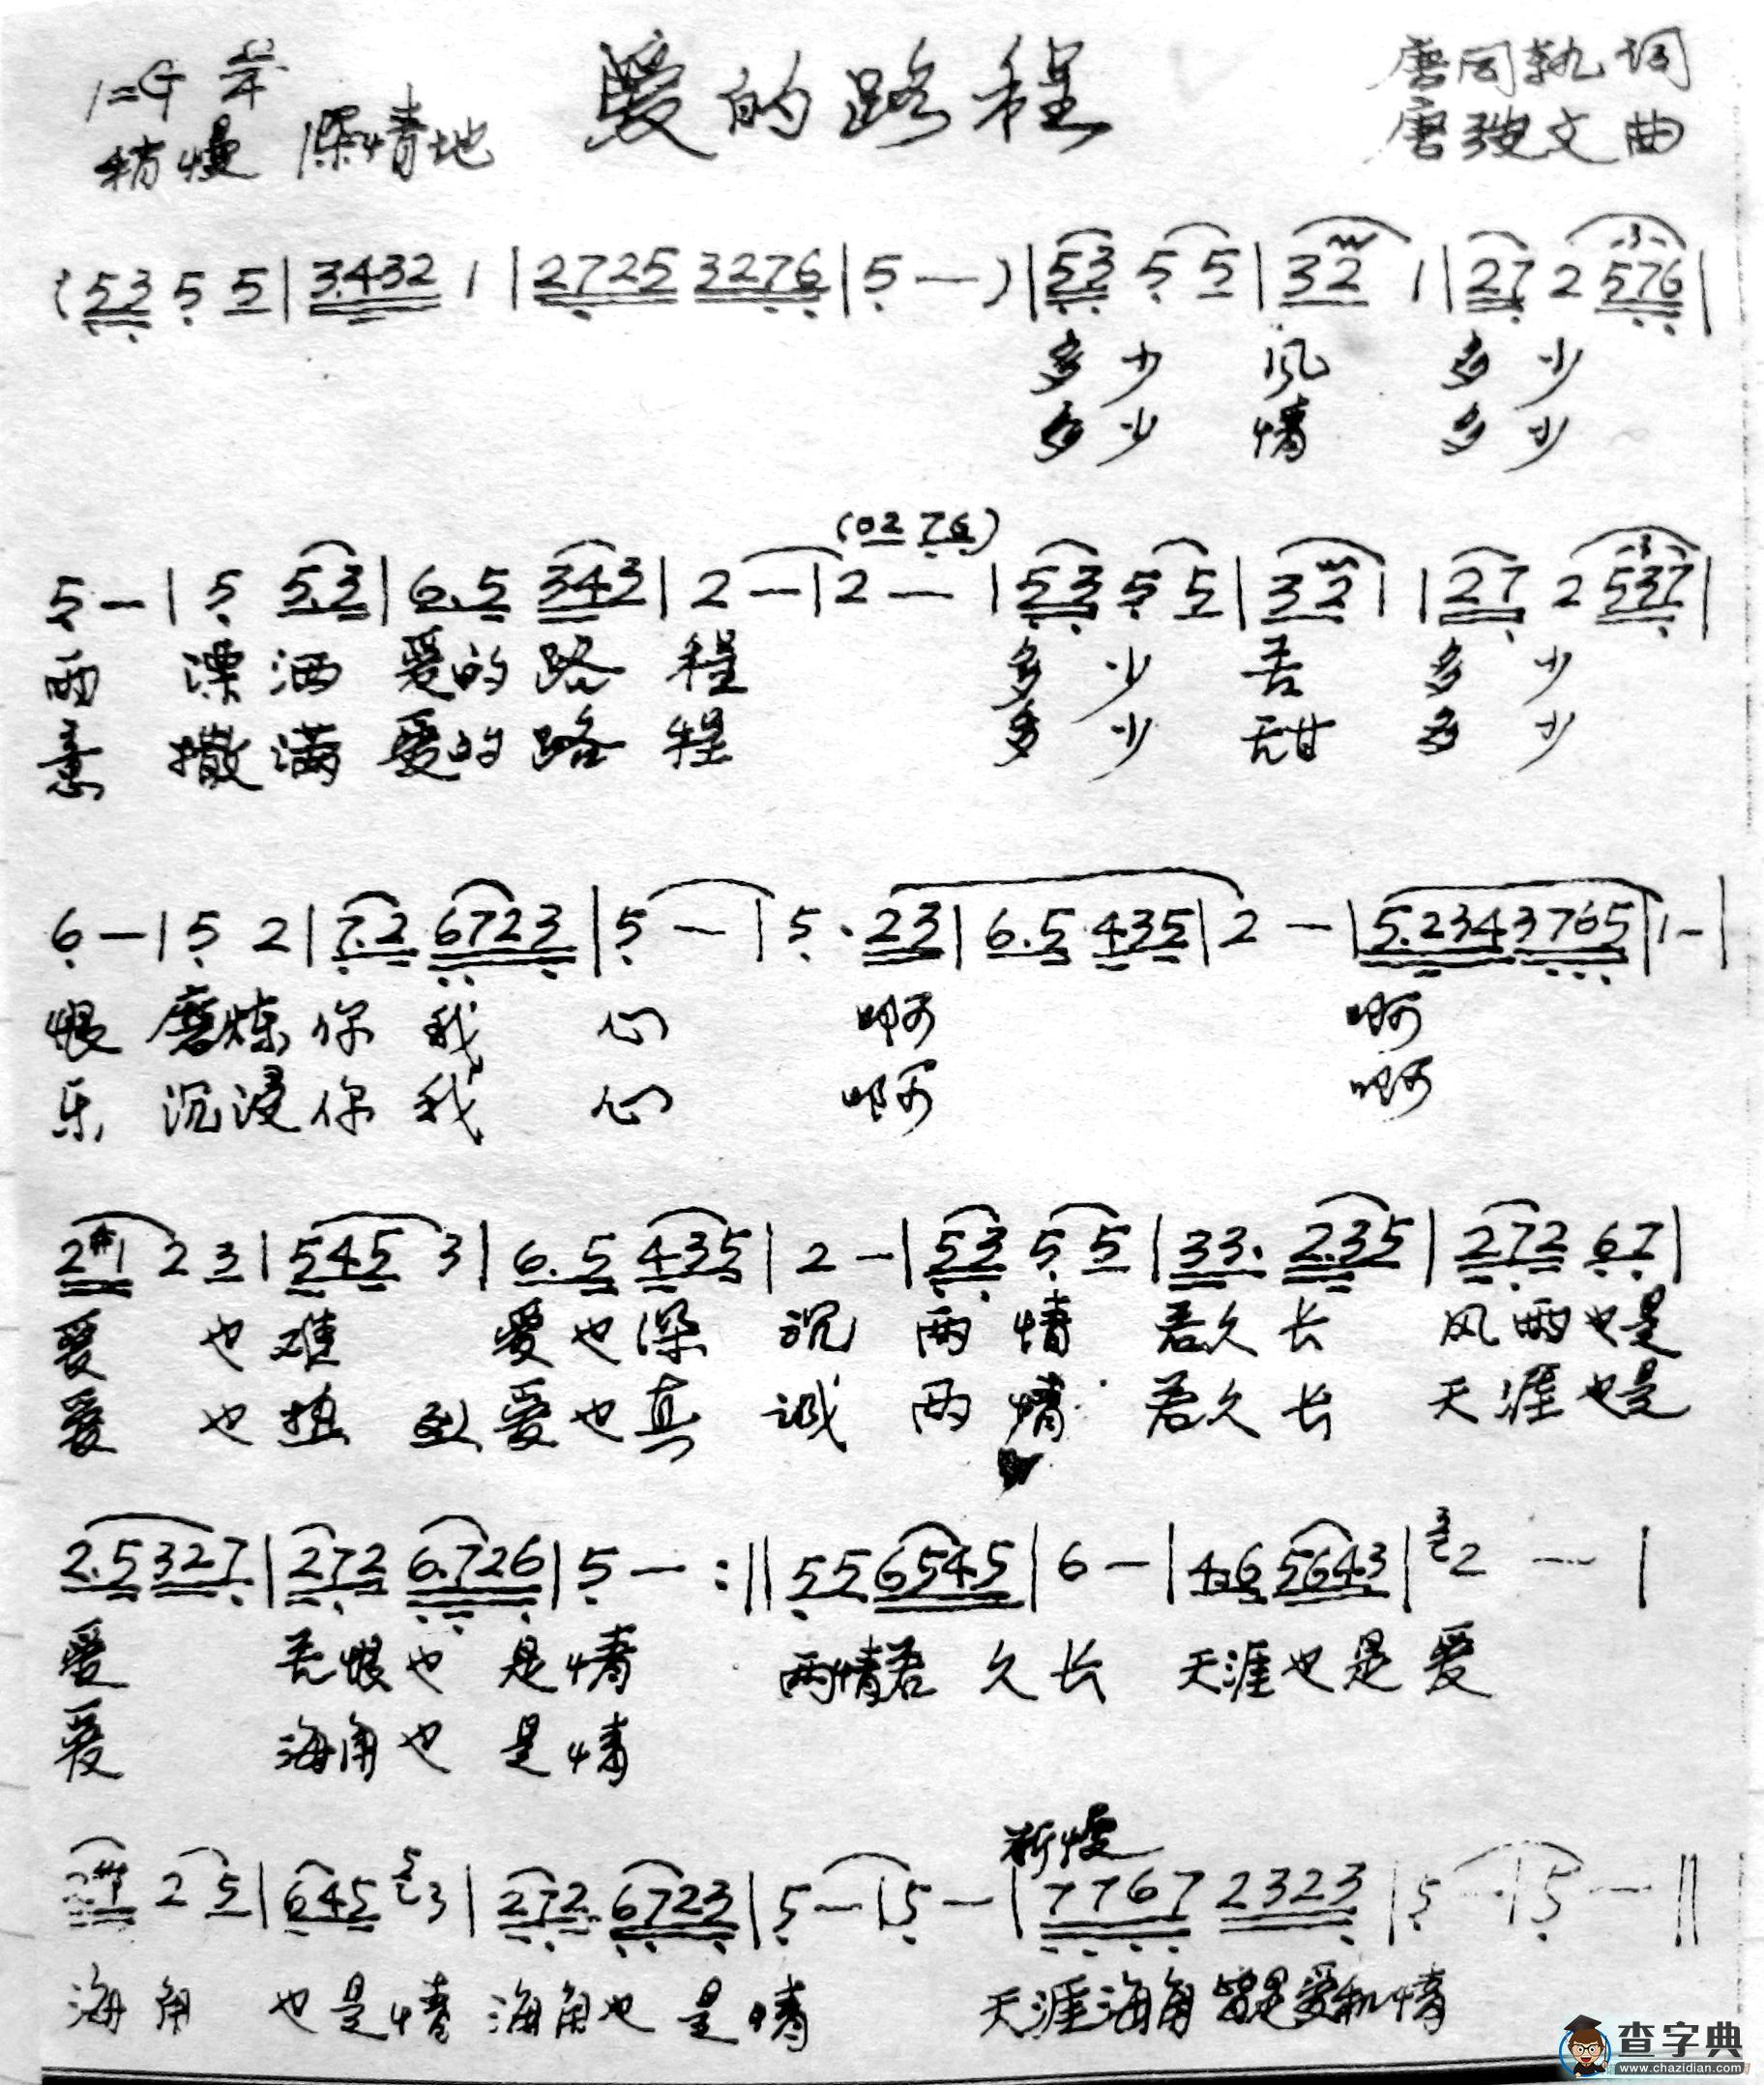 1=G 2/4 爱的路程 唐同轨词
稍慢 深情地 唐 文曲
(53 5 5|3.432 1|2725 3276|5 —)|53 5 5|32 1|27 2 576|
多少 风 多少
多少 情 多少
(02 76)
5—|5 5.3|6.5 343|2 —|2 —|53 5 5|32 1|27 2 537|
雨 漂洒 爱的路 程 多少 苦 多少
意 撒满 爱的路 程 多少 甜 多少
6—|5 2|7.2 6723|5 —|5. 23|6.5 435|2 —|5.234 3765|1-|
恨 磨炼你 我 心 啊 啊
乐 沉浸你 我 心 啊 啊
2#1 2 3|545 3|6.5 435|2 —|53 5 5|33. 2.35|272 67|
爱 也难 爱也深 沉 两 情 若久长 风雨也是
爱 也 爱也真 诚 两 情 若久长 天涯也是
2.5 327|272 6.726|5 — :||55 6545|6 —|4.6 5643|3 2 — |
爱 苦恨也 是情 两情若 久长 天涯也是 爱
爱 海角也 是情
渐慢
2#1 2 5|645 5 3|272 6723|5 —|5 —|7767 2323|5 —|5 — ||
海角 也是情 海角也 是情 天涯海角皆是爱和情
查字典
www.chazidian.com